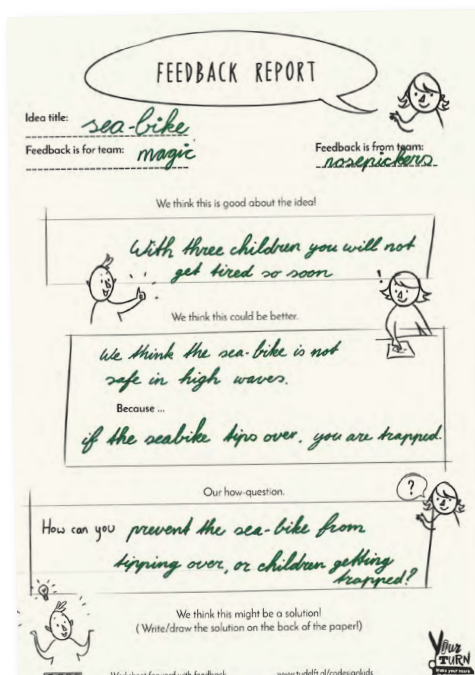 FEEDBACK REPORT
Idea title: sea-bike
Feedback is for team: magic
Feedback is from team:
nosepickers
We think this is good about the idea!
With three children you will not
get tired so soon
We think this could be better.
We think the sea-bike is not
safe in high waves.
Because ...
if the seabike tips over, you are trapped.
Our how-question.
?
How can you prevent the sea-bike from
tipping over, or children getting
trapped?
We think this might be a solution!
(Write/draw the solution on the back of the paper!)
YOUR
TURN
Worksheet forward with feedback
www.tudelft.nl/codesignkids